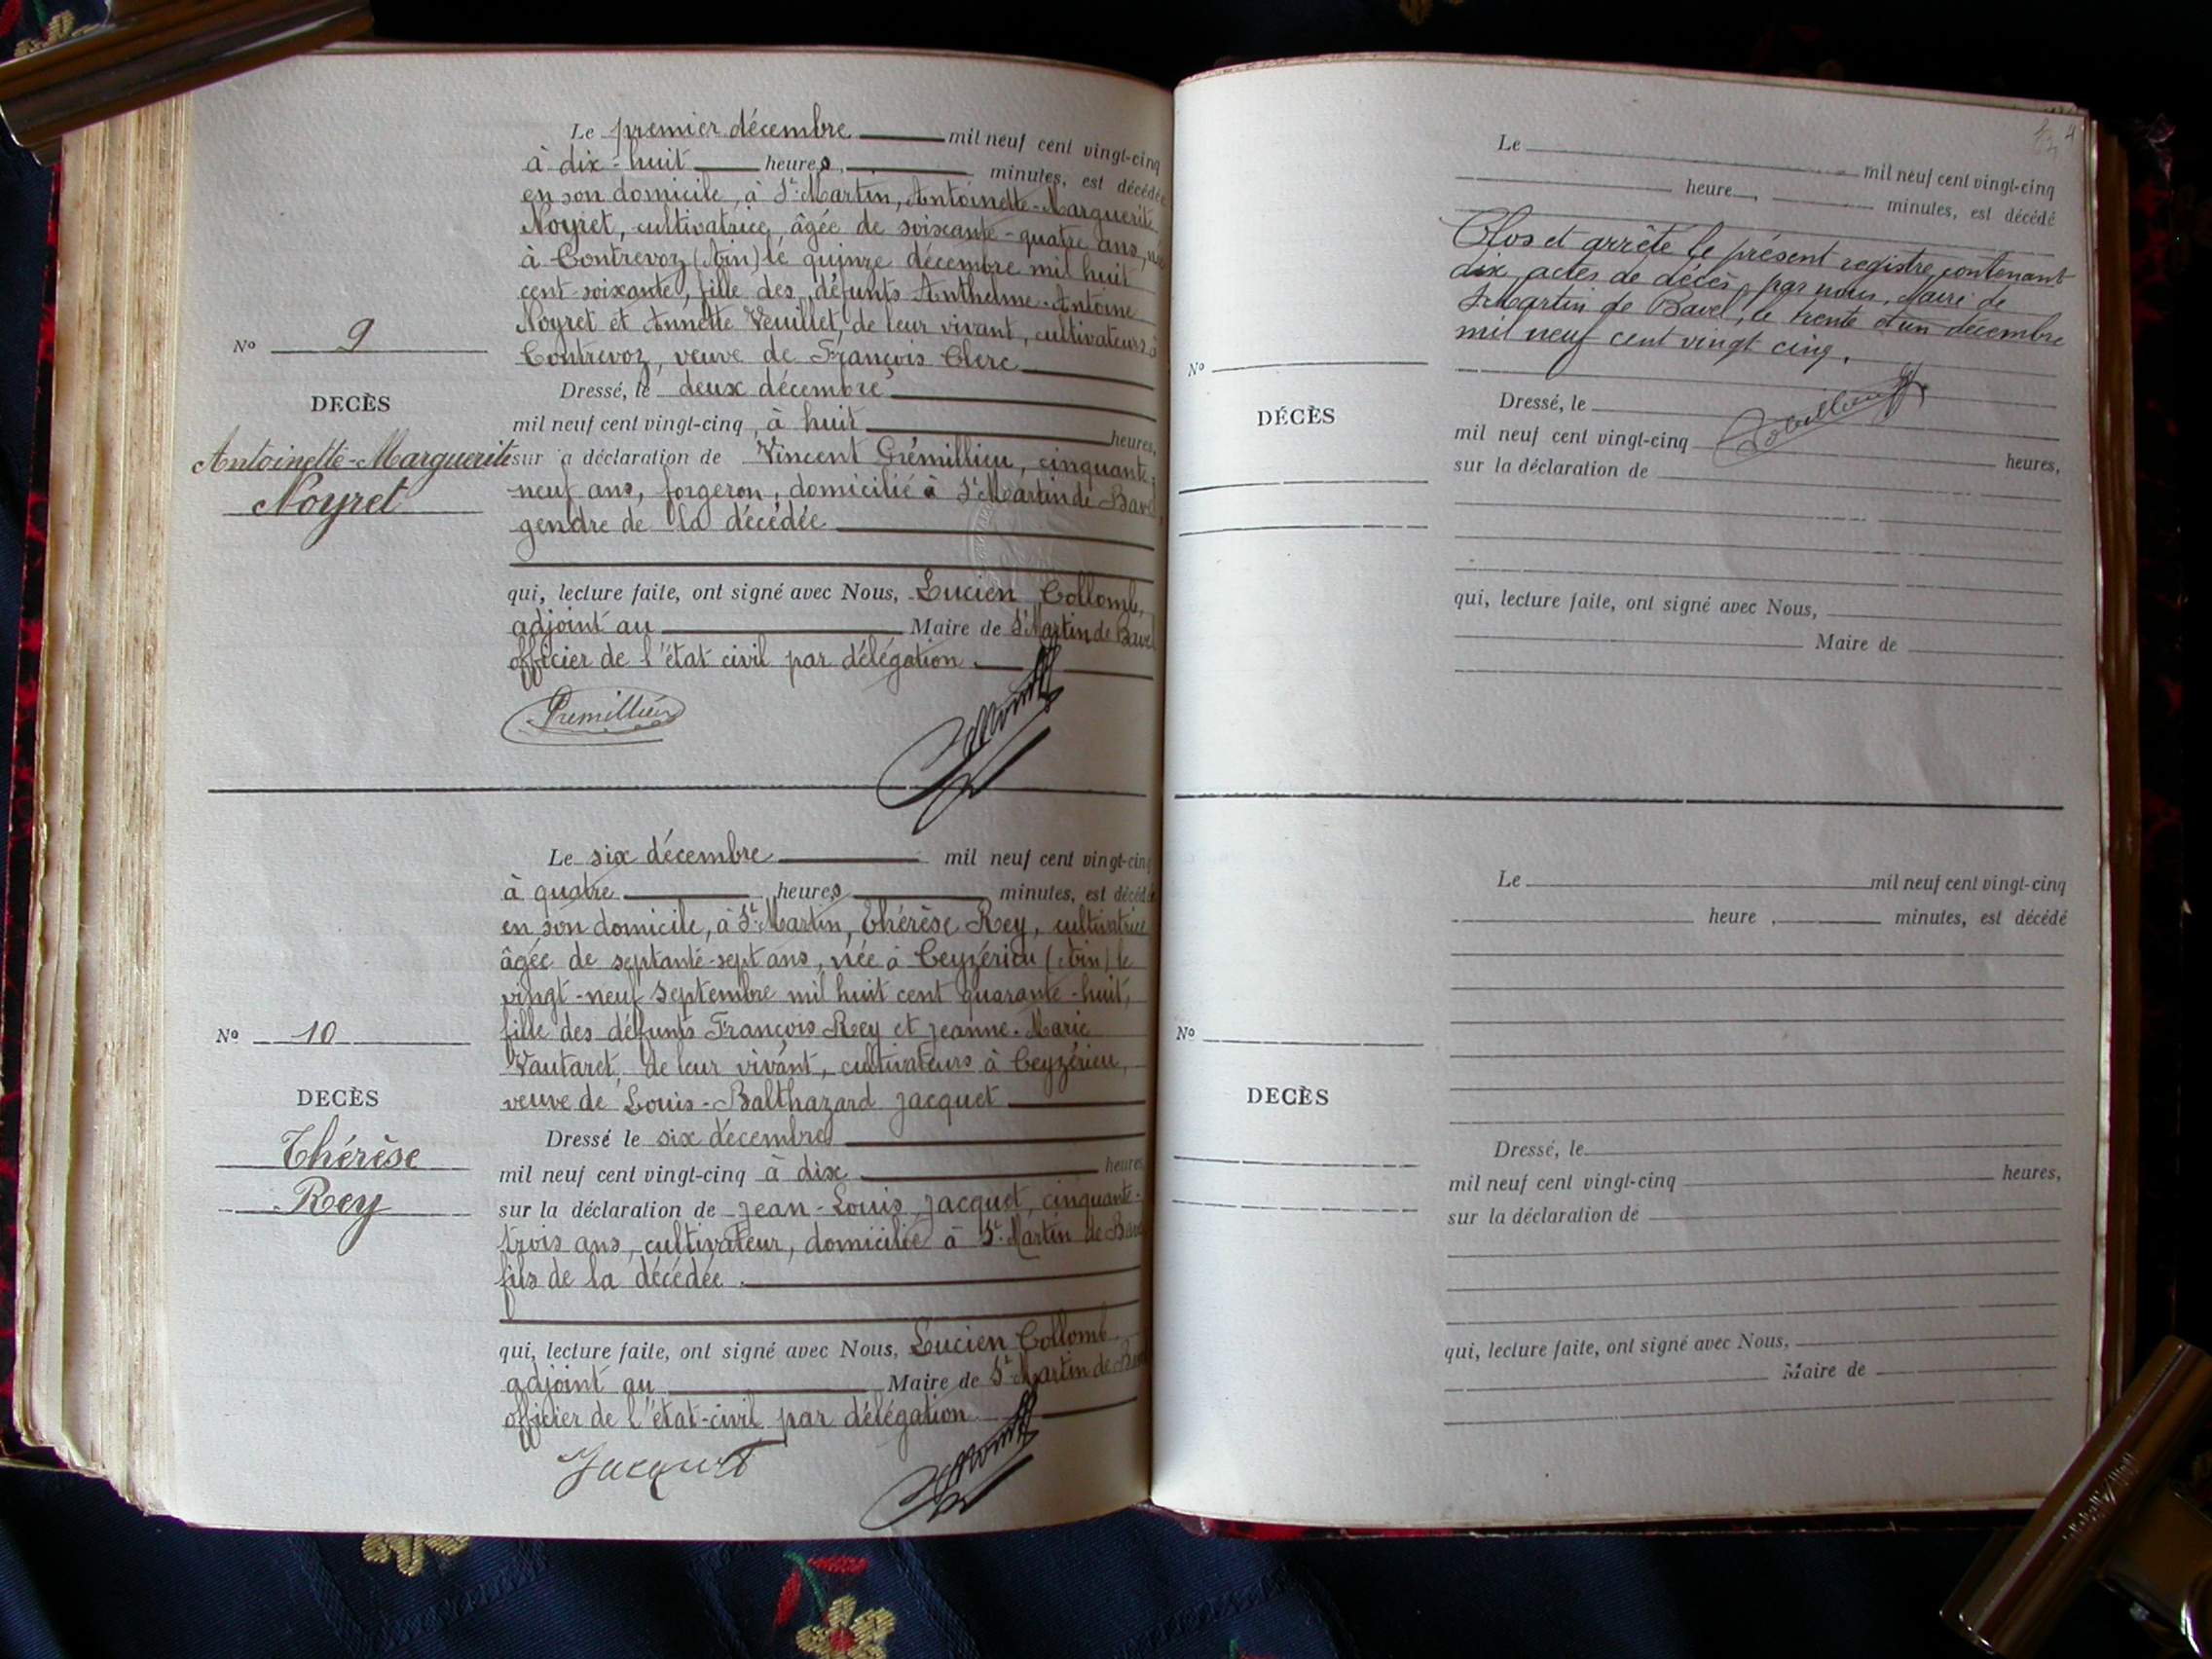 Le premier décembre mil neuf cent vingt-cinq
à dix-huit heures, minutes, est décédée
en son domicile, à St-Martin, Antoinette-Marguerite
Noyret, cultivatrice, âgée de soixante-quatre ans, née
à Contrevoz (Ain) le quinze décembre mil huit
cent-soixante, fille des défunts Anthelme-Antoine
Noyret et Annette Veuillet, de leur vivant, cultivateurs à
Contrevoz, veuve de François Clerc
Dressé, le deux décembre
mil neuf cent vingt-cinq, à huit heures,
sur la déclaration de Vincent Grémillieu, cinquante-
neuf ans, forgeron, domicilié à St Martin de Bavel,
gendre de la décédée
qui, lecture faite, ont signé avec Nous, Lucien Collomb,
adjoint au Maire de St Martin de Bavel
officier de l'état civil par délégation.
Grémillieu
No 9
DECÈS
Antoinette-Marguerite
Noyret
Le six décembre mil neuf cent vingt-cinq
à quatre heures minutes, est décédée
en son domicile, à St-Martin, Thérèse Rey, cultivatrice
âgée de septante-sept ans, née à Ceyzérieu (Ain) le
vingt-neuf septembre mil huit cent quarante-huit,
fille des défunts François Rey et Jeanne-Marie
Vautaret, de leur vivant, cultivateurs à Ceyzérieu,
veuve de Louis-Balthazard Jacquet
Dressé le six décembre
mil neuf cent vingt-cinq à dix heures
sur la déclaration de Jean-Louis Jacquet, cinquante-
trois ans, cultivateur, domicilié à St-Martin de Bavel
fils de la décédée.
qui, lecture faite, ont signé avec Nous, Lucien Collomb
adjoint au Maire de St Martin de Bavel
officier de l'état-civil par délégation
Jacquet
No 10
DECÈS
Thérèse
Rey
Le mil neuf cent vingt-cinq
heure, minutes, est décédé
Clos et arrêté le présent registre contenant
dix actes de décès, par nous, Maire de
St Martin de Bavel, le trente et un décembre
mil neuf cent vingt cinq.
No
DÉCÈS
Dressé, le
mil neuf cent vingt-cinq heures,
sur la déclaration de
qui, lecture faite, ont signé avec Nous,
Maire de
Le mil neuf cent vingt-cinq
heure, minutes, est décédé
No
DECÈS
Dressé, le
mil neuf cent vingt-cinq heures,
sur la déclaration de
qui, lecture faite, ont signé avec Nous,
Maire de